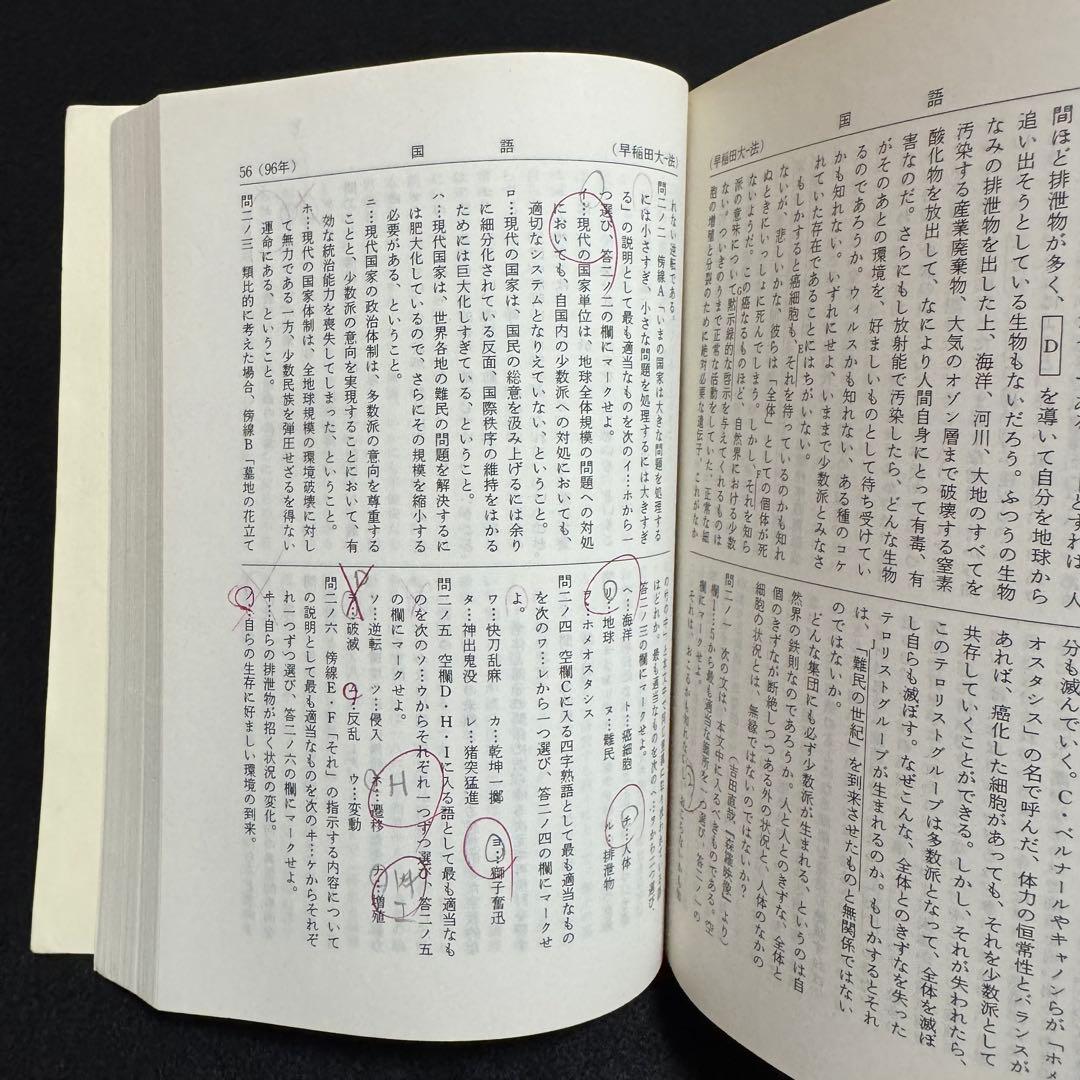 国　語
(早稲田大-法)
間ほど排泄物が多く、D を導いて自分を地球から
追い出そうとしている生物もないだろう。ふつうの生物
なみの排泄物を出した上、海洋、河川、大地のすべてを
汚染する産業廃棄物、大気のオゾン層まで破壊する窒素
酸化物を放出して、なにより人間自身にとって有毒、有
害なのだ。さらにもし放射能で汚染したら、どんな生物
がそのあとの環境を、好ましいものとして待ち受けてい
るのであろうか。ウィルスかも知れない、ある種のコケ
かも知れない。いずれにせよ、いままで少数派とみなさ
れていた存在であることにはちがいない。
もしかすると癌細胞も、それを持っているのかも知れ
ないが、悲しいかな、彼らは「全体」としての個体が死
ぬとき にいっしょに死んでしまう。しかし、それを知ら
ないようだ。この癌なるものほど、自然界における少数
派の意味について、G黙示録的な啓示を与えてくれるものは
ない。ついきのうまで正常な活動をしていた、正常な細
胞の増殖と分裂のために絶対必要な遺伝子、これがなか
分も滅んでいく。C・ベルナールやキャノンらが「ホメ
オスタシス」の名で呼んだ、体力の恒常性とバランスが
あれば、癌化した細胞があっても、それを少数派として
共存していくことができる。しかし、それが失われたら、
このテロリストグループは多数派となって、全体を滅ぼ
し自らも滅ぼす。なぜこんな、全体とのきずなを失った
テロリストグループが生まれるのか。もしかするとそれ
は、J「難民の世紀」を到来させたものと無関係ではない
のではないか。
どんな集団にも必ず少数派が生まれる、というのは自
然界の鉄則なのであろうか。人と人とのきずな、全体と
個のきずなが断絶しつつある外の状況と、人体のなかの
細胞の状況とは、無縁ではないのではないか?
(吉田直哉『森羅映像』より)
問二ノ一　次の文は、本文中に入るべきものである。空
欄1…5から最も適当な箇所を一つ選び、答二ノ一の
欄にマークせよ。
56 (96年)
国　語
(早稲田大-法)
れない逆転である。
問二ノ二　傍線A「いまの国家は大きな問題を処理する
には小さすぎ、小さな問題を処理するには大きすぎ
る」の説明として最も適当なものを次のイ…ホから一
つ選び、答二ノ二の欄にマークせよ。
イ…現代の国家単位は、地球全体規模の問題への対処
においても、自国内の少数派への対処においても、
適切なシステムとなりえていない、ということ。
ロ…現代の国家は、国民の総意を汲み上げるには余り
に細分化されている反面、国際秩序の維持をはかる
ためには巨大化しすぎている、ということ。
ハ…現代の国家は、世界各地の難民の問題を解決するに
は肥大化しているので、さらにその規模を縮小する
必要がある、ということ。
ニ…現代国家の政治体制は、多数派の意向を尊重する
ことと、少数派の意向を実現することにおいて、有
効な統治能力を喪失してしまった、ということ。
ホ…現代の国家体制は、全地球規模の環境破壊に対し
て無力である一方、少数民族を弾圧せざるを得ない
運命にある、ということ。
問二ノ三　類比的に考えた場合、傍線B「墓地の花立て
はどれか。最も適当なものを次のヘ…ヲから二つ選び、
答二ノ三の欄にマークせよ。
ヘ…海洋　ト…癌細胞　チ…人体
リ…地球　ヌ…難民　ル…排泄物
ヲ…ホメオスタシス
問二ノ四　空欄Cに入る四字熟語として最も適当なもの
を次のワ…レから一つ選び、答二ノ四の欄にマークせ
よ。
ワ…快刀乱麻　カ…乾坤一擲　ヨ…獅子奮迅
タ…神出鬼没　レ…猪突猛進
問二ノ五　空欄D・H・Iに入る語として最も適当なも
のを次のソ…ウからそれぞれ一つずつ選び、答二ノ五
の欄にマークせよ。
H
I
ソ…逆転　ツ…侵入　ネ…遷移　ナ…増殖
D
ラ…破滅　ム…反乱　ウ…変動
問二ノ六　傍線E・F「それ」の指示する内容について
の説明として最も適当なものを次のヰ…ケからそれぞ
れ一つずつ選び、答二ノ六の欄にマークせよ。
ヰ…自らの排泄物が招く状況の変化。
ノ…自らの生存に好ましい環境の到来。